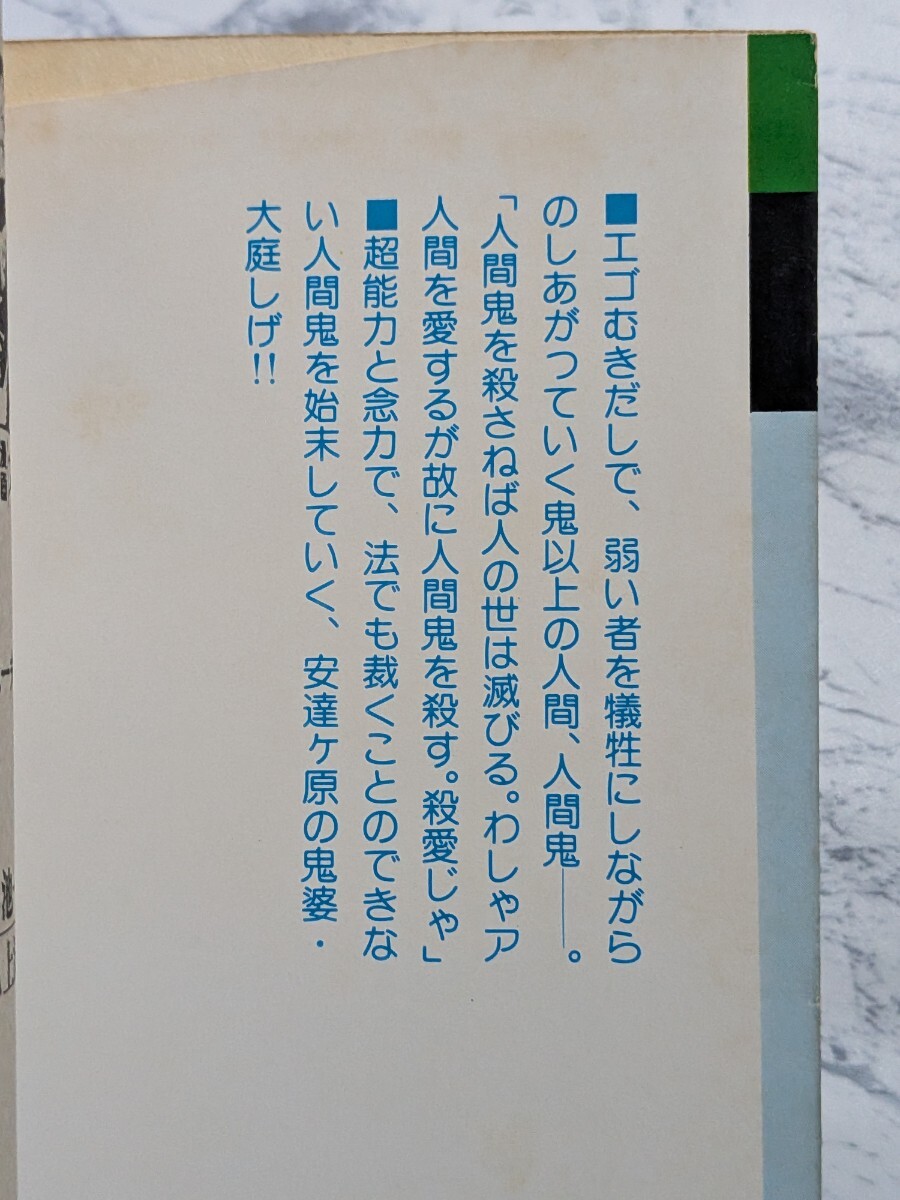 ■エゴむきだしで、弱い者を犠牲にしながら
のしあがっていく鬼以上の人間、人間鬼――。
「人間鬼を殺さねば人の世は滅びる。わしゃア
人間を愛するが故に人間鬼を殺す。殺愛じゃ」
■超能力と念力で、法でも裁くことのできな
い人間鬼を始末していく、安達ヶ原の鬼婆・
大庭しげ!!